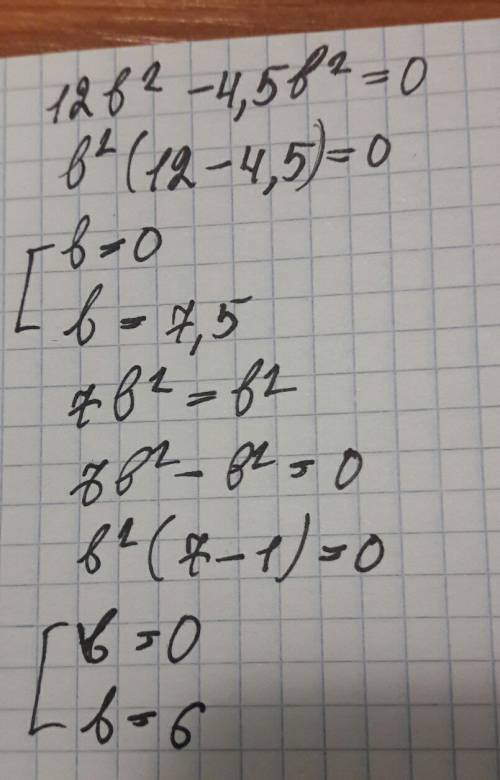 12b² - 4,5b² = 0
b² (12 - 4,5) = 0
b = 0
b = 7,5
7b² = b²
7b² - b² = 0
b² (7 - 1) = 0
b = 0
b = 6